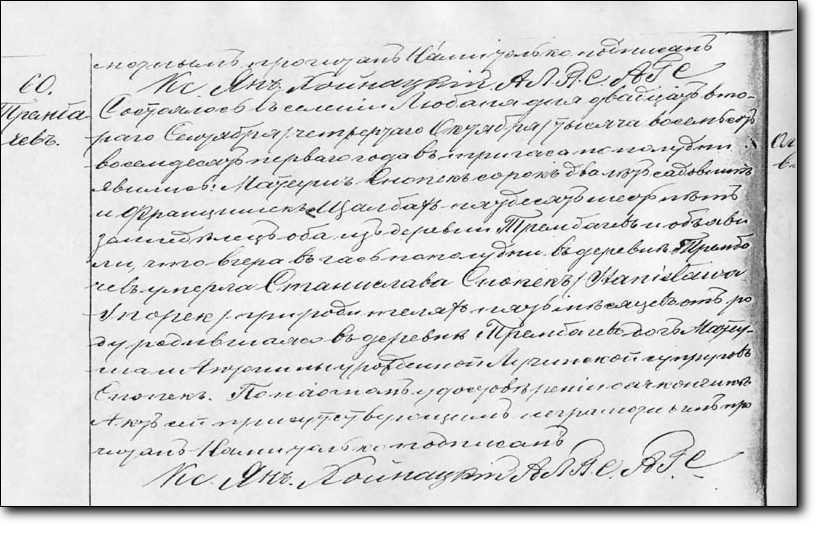 мотнымъ прочитанъ Нами только подписанъ
Кс. Янъ Хойнацкій А.П.П.С. А.Г.С.
60.
Тремба
чевъ.
Состоялось въ селеніи Любаня дня двадцать вто-
раго Сентября/четвертаго Октября/тысяча восемьсотъ
восемдесятъ перваго года въ три часа по полудни
явились: Матеушъ Снопекъ сорокъ два лѣтъ садовникъ
и Францишекъ Щалбатъ пятьдесятъ шесть лѣтъ
земледѣлецъ оба изъ деревни Трембачевъ и объяви
ли, что вчера въ часъ пополудни въ деревнѣ Тремба
чевъ умерла Станислава Снопекъ/Stanisława
Snopek/при родителяхъ пять мѣсяцевъ отъ ро
ду родившаяся въ деревнѣ Трембачевъ дочь Матеу-
ша и урожденной Лучинской супруговъ
Снопекъ. По настоящемъ удостовѣреніи о кончинѣ
Актъ сей присутствующимъ неграмотнымъ про
читанъ Нами только подписанъ
Кс. Янъ Хойнацкій А.П.П.С. А.Г.С.